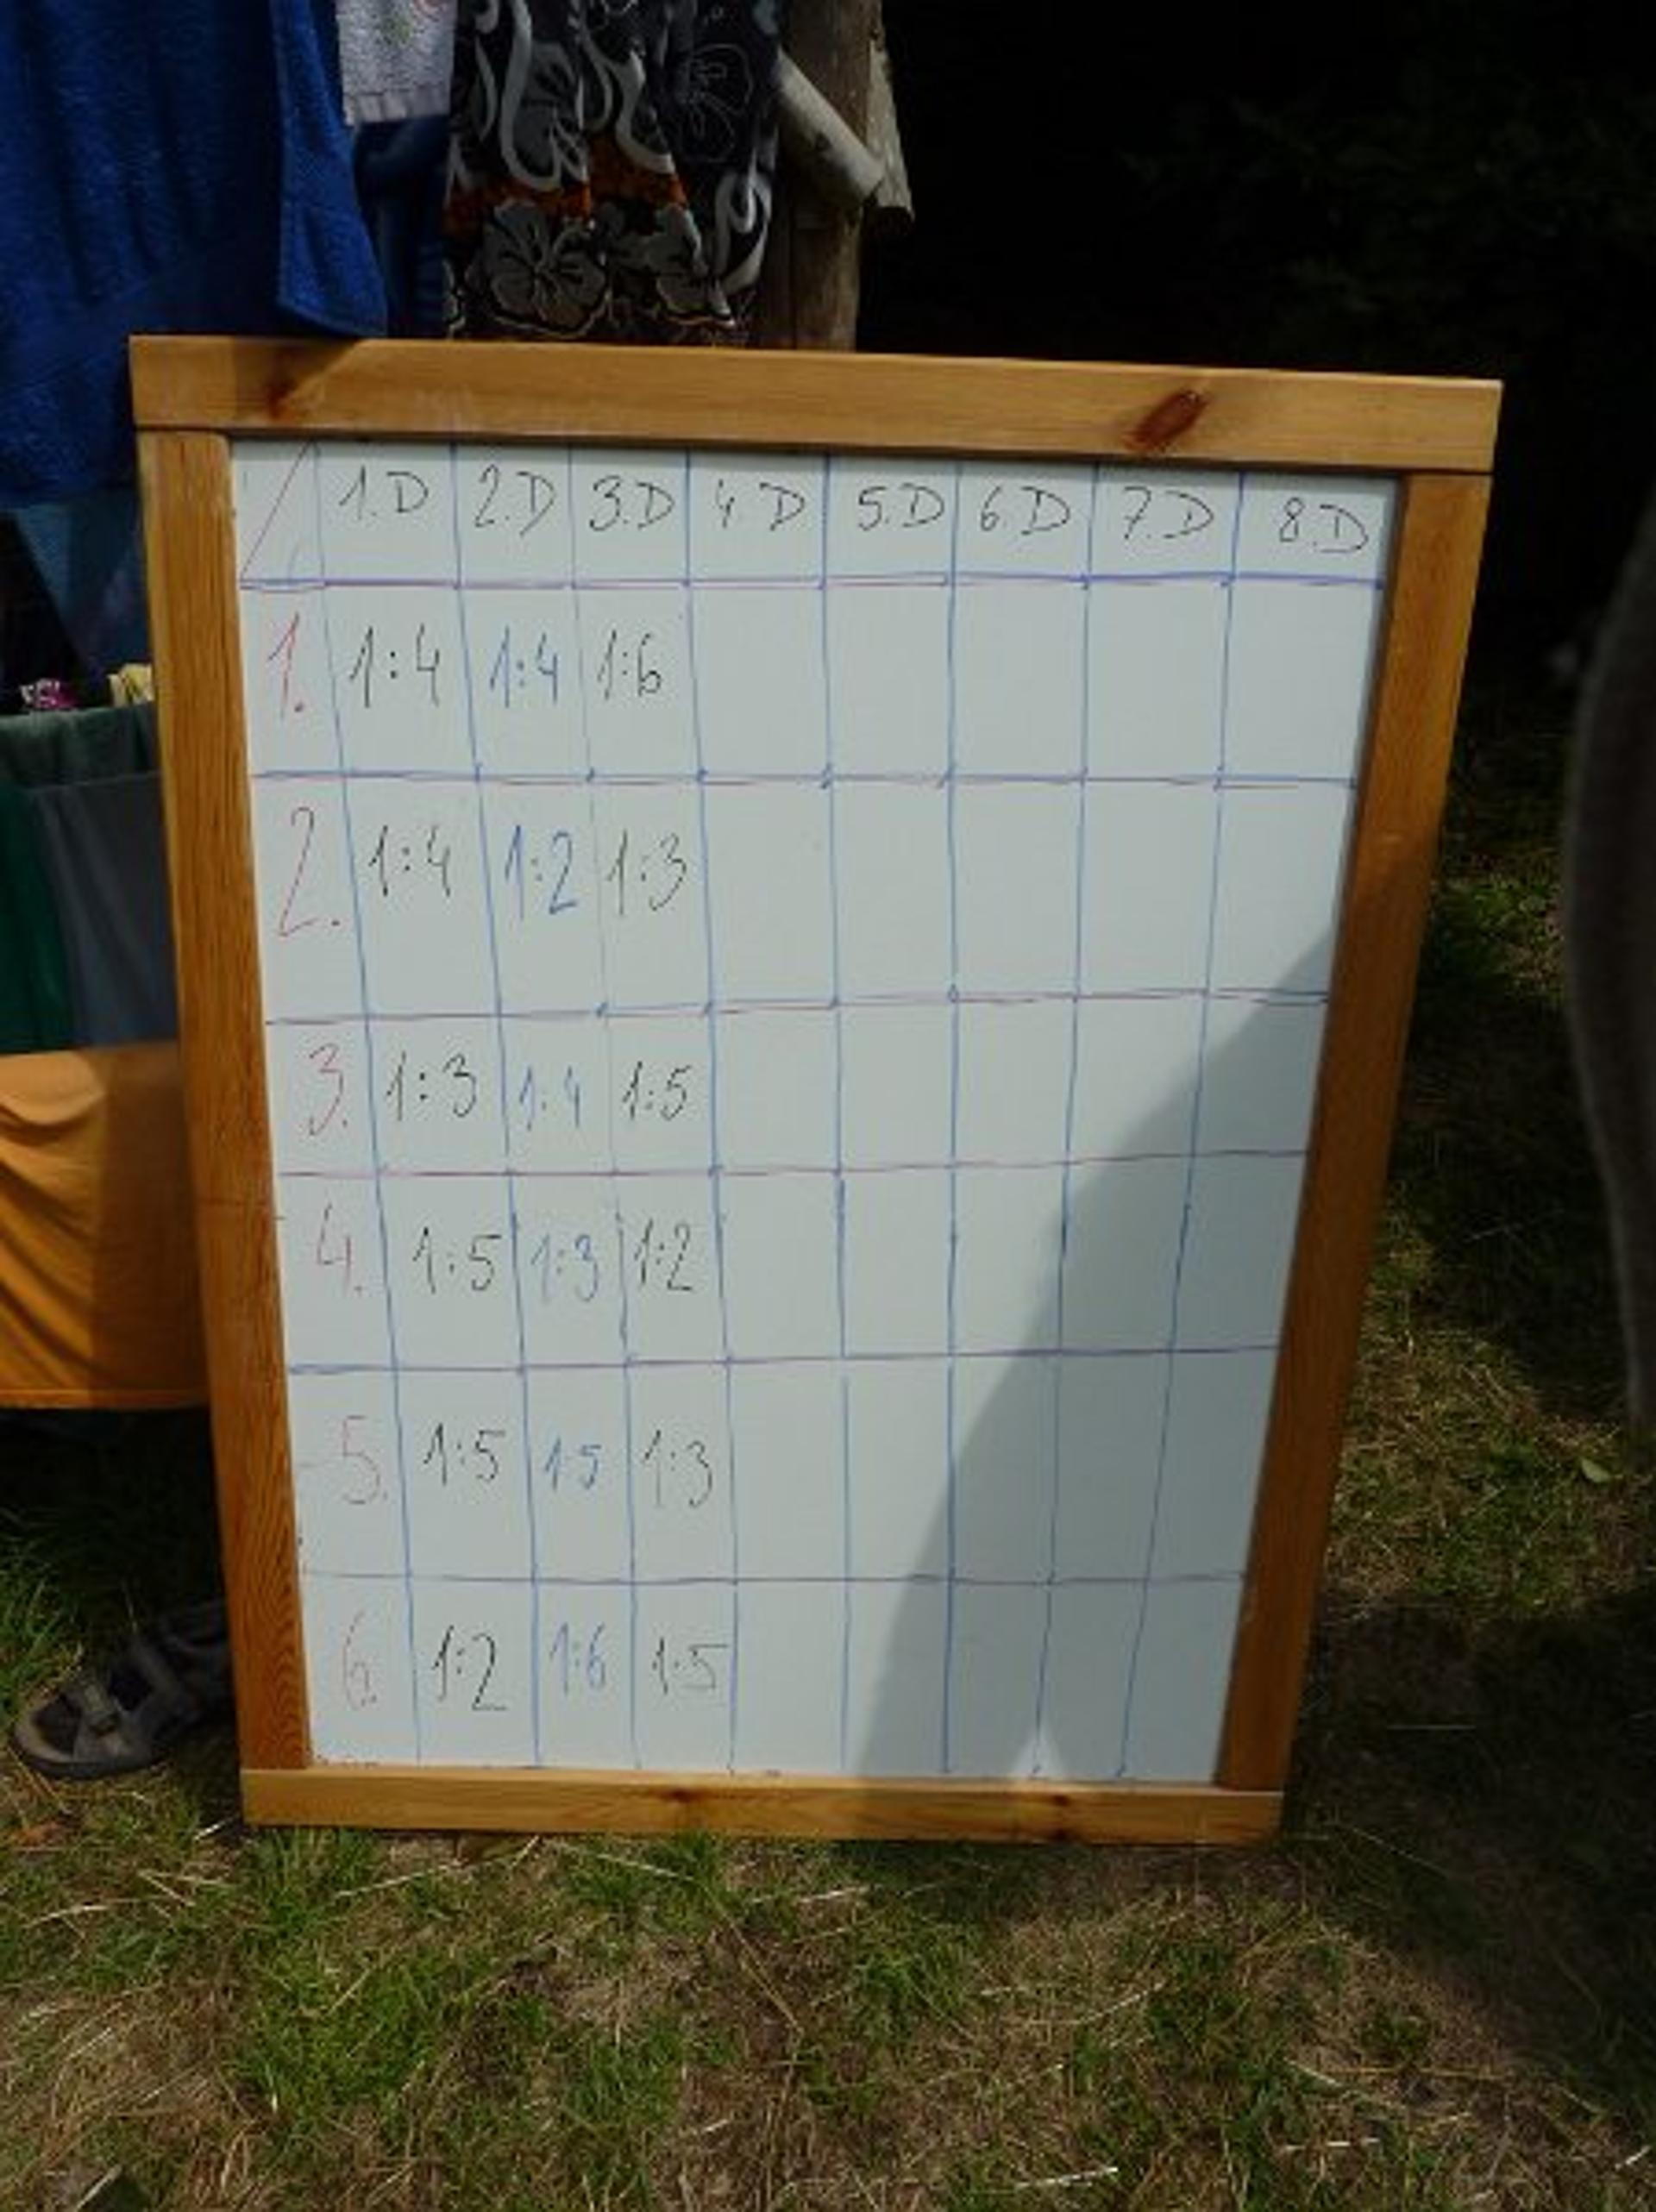 1.D 2.D 3.D 4.D 5.D 6.D 7.D 8.D
1. 1:4 1:4 1:6
2. 1:4 1:2 1:3
3. 1:3 1:4 1:5
4. 1:5 1:3 1:2
5. 1:5 1:5 1:3
6. 1:2 1:6 1:5